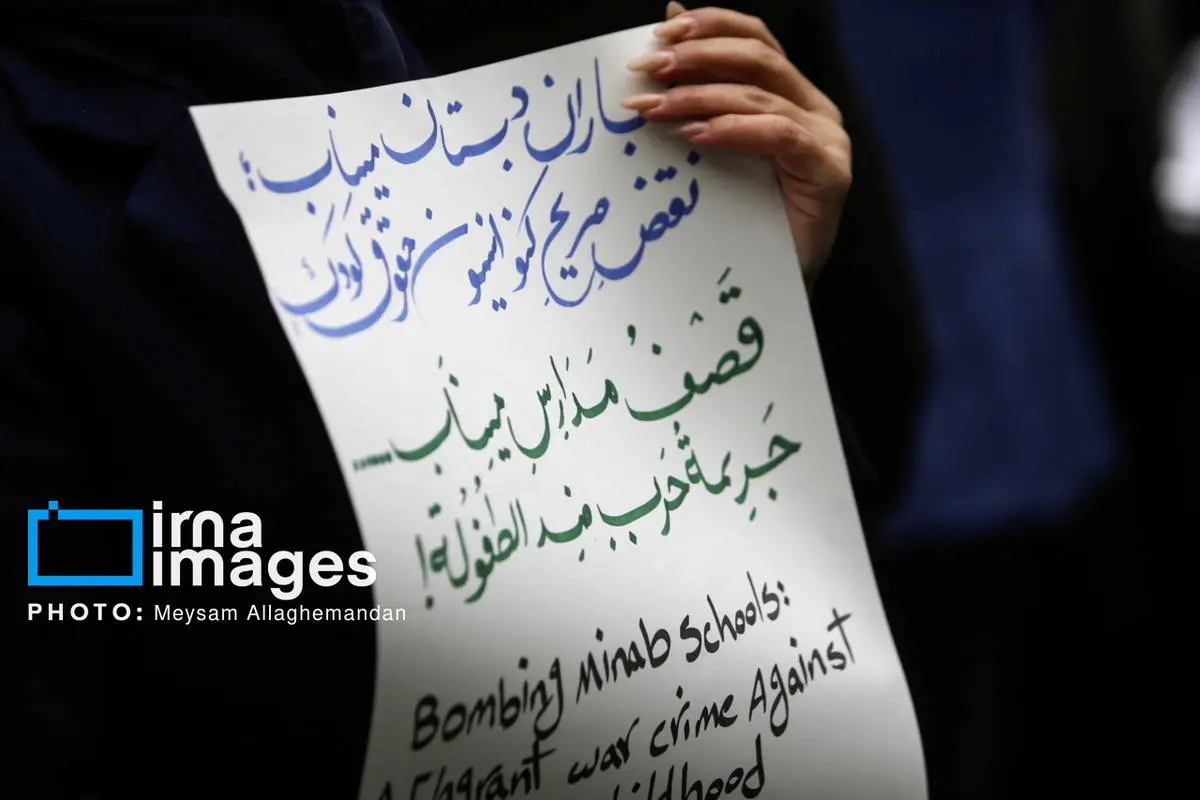 باران دبستان میناب؛
نقض صریح کنوانسیون حقوق کودک
قَصْفُ مَدَارِسِ مِینَاب.....
جَرِیمَةُ حَرب ضِد الطُفُولَة!
Bombing Minab schools:
A Flagrant war crime Against
ildhood
irna
images
PHOTO: Meysam Allaghemandan